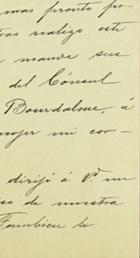 mas pronto po
tras realizo este
mande sus
del Cónsul
Bourdaloue, á
coger mi cor-
dirijó á V.d un
so de nuestra
tambien le